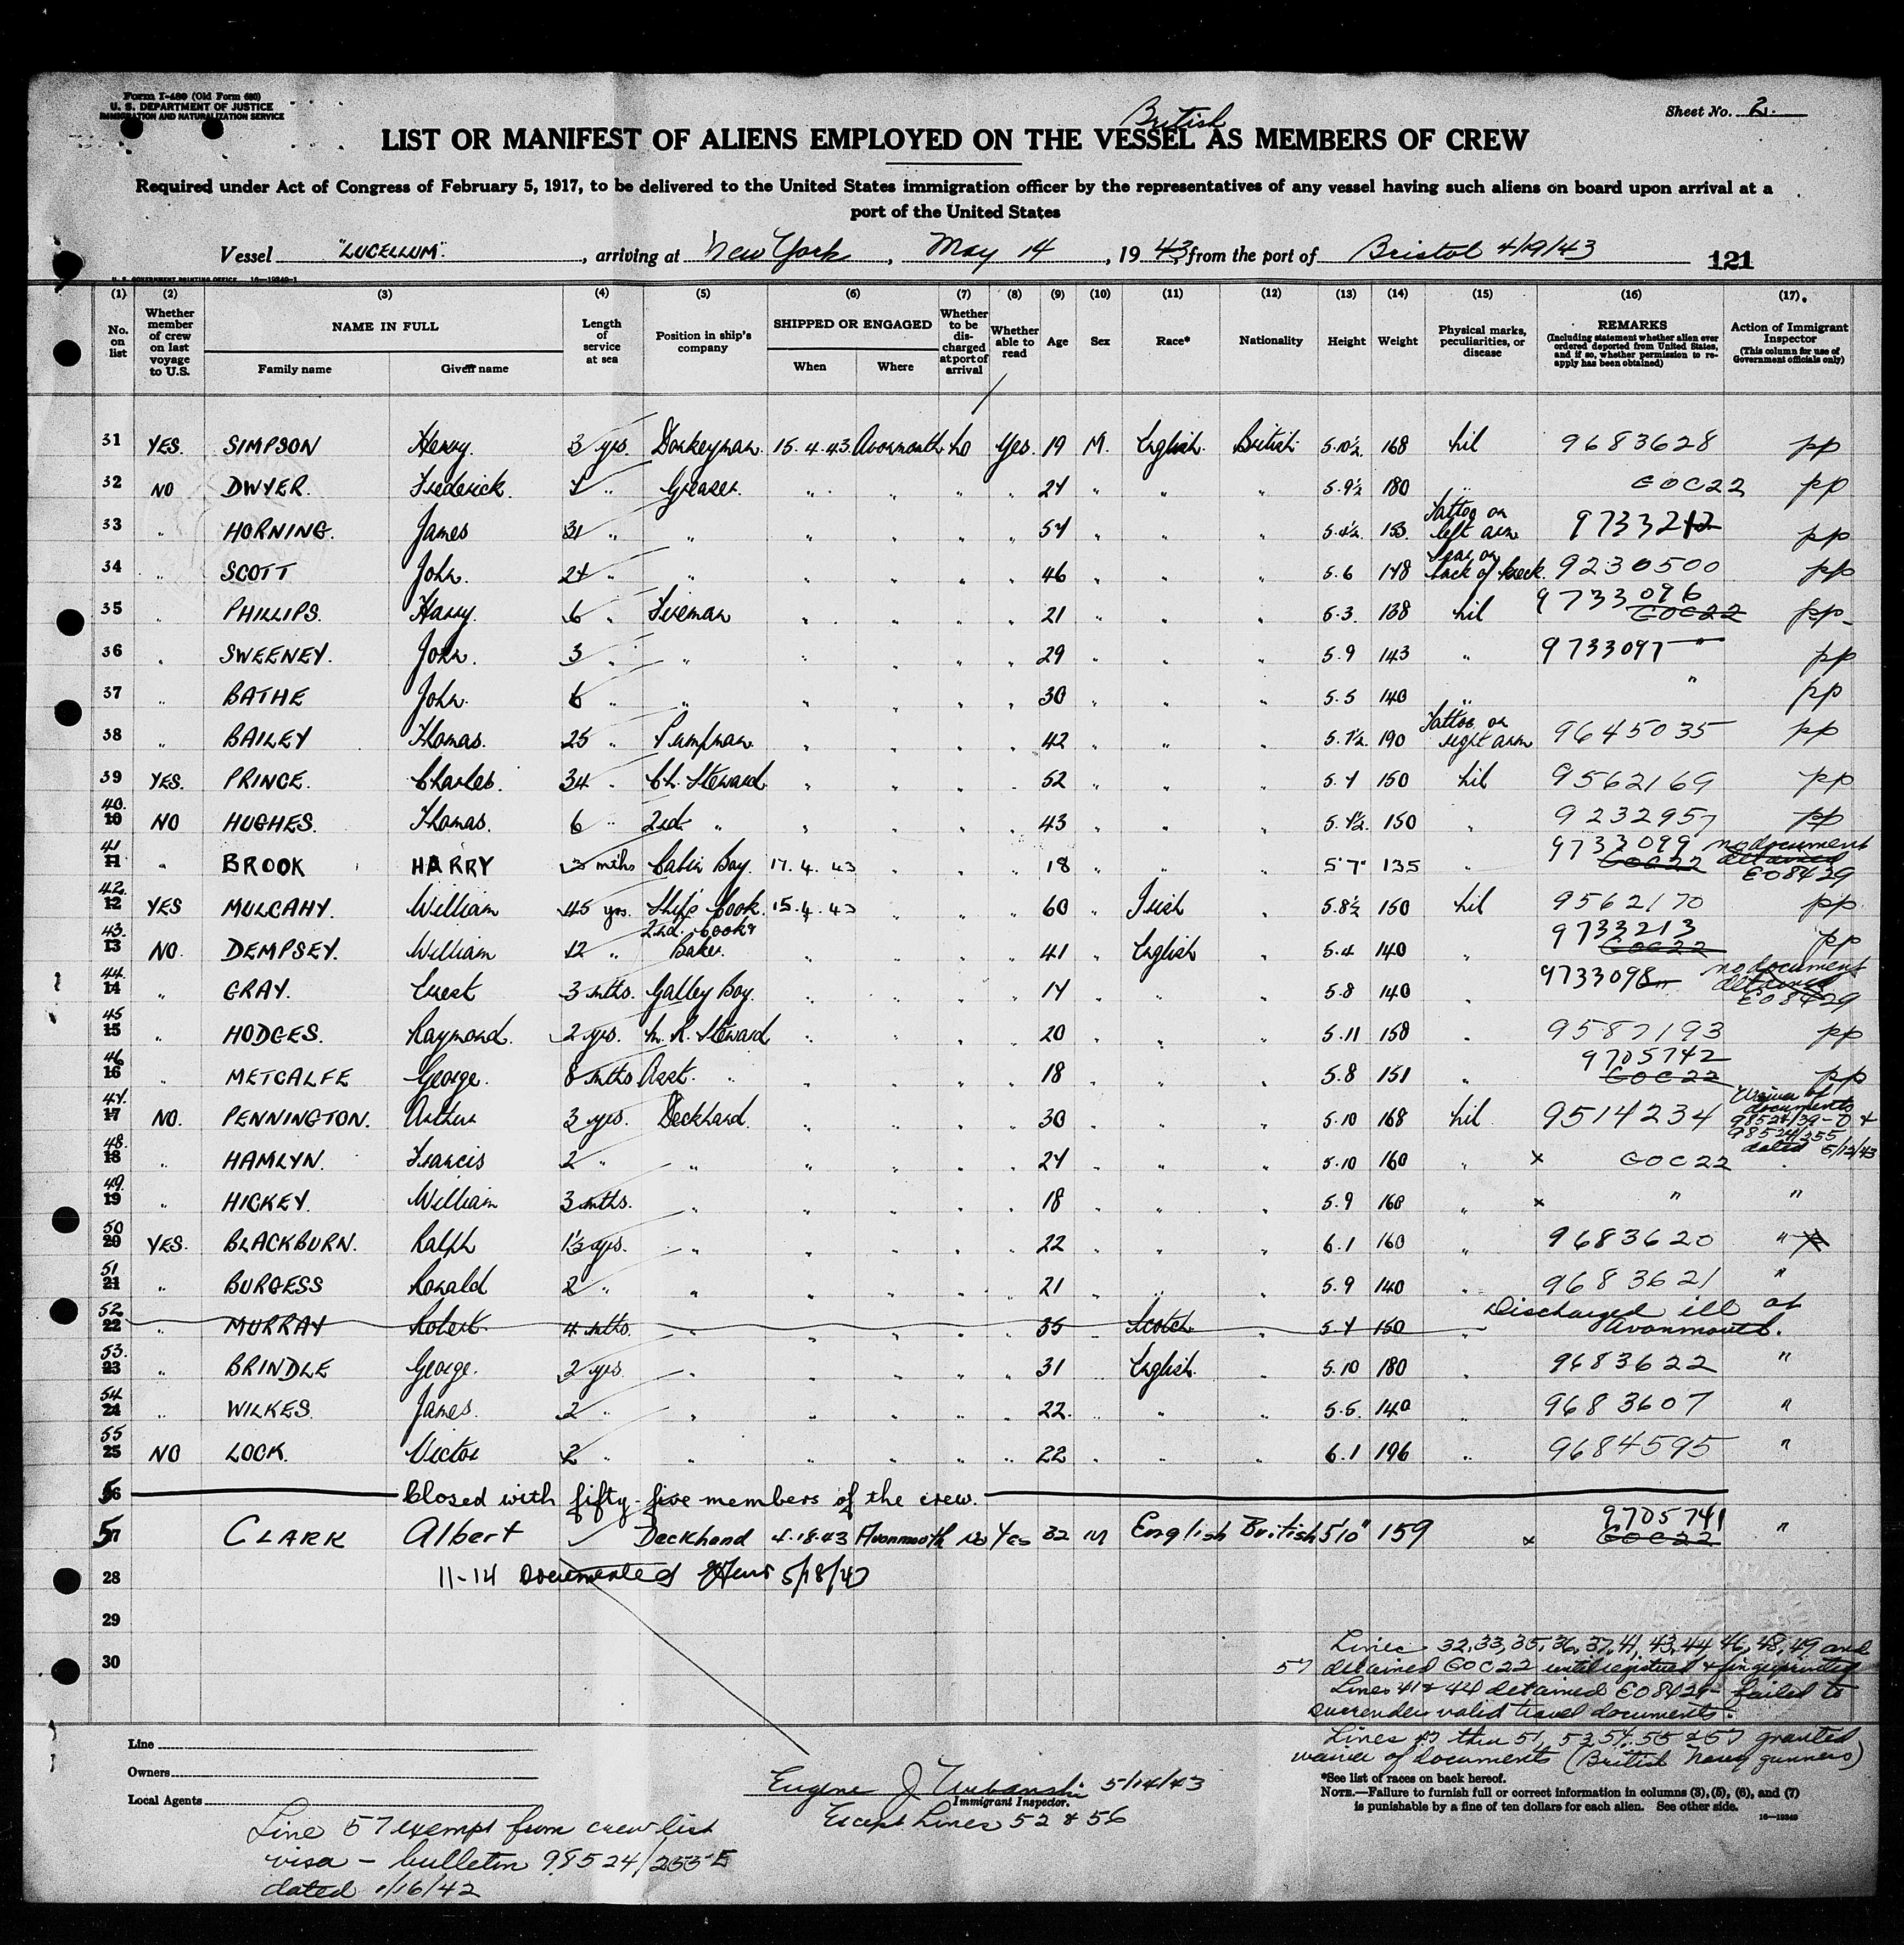 Form I-480 (Old Form 680)
U. S. DEPARTMENT OF JUSTICE
IMMIGRATION AND NATURALIZATION SERVICE
Sheet No. 2.
British
LIST OR MANIFEST OF ALIENS EMPLOYED ON THE VESSEL AS MEMBERS OF CREW
Required under Act of Congress of February 5, 1917, to be delivered to the United States immigration officer by the representatives of any vessel having such aliens on board upon arrival at a
port of the United States
Vessel "LUCELLUM", arriving at New York, May 14, 1943, from the port of Bristol 4/19/43 121
U. S. GOVERNMENT PRINTING OFFICE 16—19849-1
(1) (2) (3) (4) (5) (6) (7) (8) (9) (10) (11) (12) (13) (14) (15) (16) (17)
No. on list Whether member of crew on last voyage to U.S. NAME IN FULL Family name Given name Length of service at sea Position in ship's company SHIPPED OR ENGAGED When Where Whether to be discharged at port of arrival Whether able to read Age Sex Race* Nationality Height Weight Physical marks, peculiarities, or disease REMARKS (Including statement whether alien ever ordered deported from United States, and if so, whether permission to reapply has been obtained) Action of Immigrant Inspector (This column for use of Government officials only)
31 YES. SIMPSON Henry. 3 yrs. Donkeyman. 15.4.43 Avonmouth No Yes. 19 M. English. British 5.10½ 168 Nil 9683628 pp
32 NO DWYER. Frederick. " Greaser. " " " " 24 " " " 5.9½ 180 " GOC22 pp
33 " HORNING. James 31 " " " " " " 54 " " " 5.4½ 153. Tattoo on left arm 9733212 pp
34 " SCOTT John. 24 " " " " " " 46 " " " 5.6 148 Scar on back of neck. 9230500 pp
35 " PHILLIPS. Harry. 6 " Fireman " " " " 21 " " " 5.3. 138 Nil 9733096 GOC22 pp
36 " SWEENEY. John. 3 " " " " " " 29 " " " 5.9 143 " 9733097 " pp
37 " BATHE John. 6 " " " " " " 30 " " " 5.5 140 " " pp
38 " BAILEY Thomas. 25 " Pumpman. " " " " 42 " " " 5.7½ 190 Tattoo on right arm 9645035 pp
39 YES. PRINCE. Charles. 34 " Ch. Steward. " " " " 52 " " " 5.4 150 Nil 9562169 pp
40. 10 NO HUGHES. Thomas. 6 " 2nd. " " " " " 43 " " " 5.4½. 150 " 9232957 pp
41 11 " BROOK HARRY 3 mths Cabin Boy. 17.4.43 " " " 18 " " " 5'7" 135 " 9733099 GOC22 no document detained EO8429
42. 12 YES MULCAHY. William 45 yrs. Ship's Cook. 15.4.43 " " " 60 " Irish " 5.8½ 150 Nil 9562170 pp.
43. 13 NO. DEMPSEY. William 12 " 2nd. Cook & Baker. " " " " 41 " English " 5.4 140 " 9733213 GOC22 pp
44. 14 " GRAY. Ernest 3 mths. Galley Boy. " " " " 17 " " " 5.8 140 " 9733098 " no document detained EO8429
45 15 " HODGES. Raymond. 2 yrs. M. R. Steward " " " " 20 " " " 5.11 158 " 9587193 pp
46 16 " METCALFE George. 8 mths Asst. " " " " " 18 " " " 5.8 151 " 9705742 GOC22 pp
47. 17 NO. PENNINGTON. Arthur 3 yrs. Deckhand. " " " " 30 " " " 5.10 168 Nil 9514234 Waiver of documents 98524/39-D & 98524/255 dated 5/12/43
48. 18 " HAMLYN. Francis 2 " " " " " " 24 " " " 5.10 160 " x GOC22
49. 19 " HICKEY. William 3 mths. " " " " " 18 " " " 5.9 168 " x " "
50 20 YES. BLACKBURN. Ralph 1½ yrs. " " " " " 22 " " " 6.1 160 " 9683620 "
51 21 " BURGESS Ronald 2 " " " " " " 21 " " " 5.9 140 " 9683621 "
52. 22 " MURRAY Robert. 4 mths. " " " " " 35 " Scotch " 5.4 150 " Discharged ill at Avonmouth.
53. 23 " BRINDLE George. 2 yrs. " " " " " 31 English. " 5.10 180 " 9683622 "
54 24 " WILKES. James. 2 " " " " " " 22. " " " 5.5. 140 " 9683607 "
55 25 NO LOCK. Victor 2 " " " " " " 22 " " " 6.1 196 " 9684595 "
56 Closed with fifty-five members of the crew.
57 CLARK Albert Deckhand 4.18.43 Avonmouth No Yes 32 M English British 5'10" 159 x 9705741 GOC22 "
28 11-14 Documented 5/18/43
29
30
Lines 32,33,35,36,37,41,43,44,46,48,49 and
57 detained GOC22 until registered & fingerprinted
Lines 41 & 44 detained EO8429 - failed to
surrender valid travel documents.
Lines 47 thru 51, 53,54,55 & 57 granted
waiver of documents (British Navy gunners)
Line
Owners
Local Agents
Eugene J. Urbanski 5/14/43
Immigrant Inspector.
Except Lines 52 & 56
*See list of races on back hereof.
NOTE.—Failure to furnish full or correct information in columns (3), (5), (6), and (7)
is punishable by a fine of ten dollars for each alien. See other side.
16—19849
Line 57 exempt from crew list
visa - bulletin 98524/255-E
dated 1/16/42